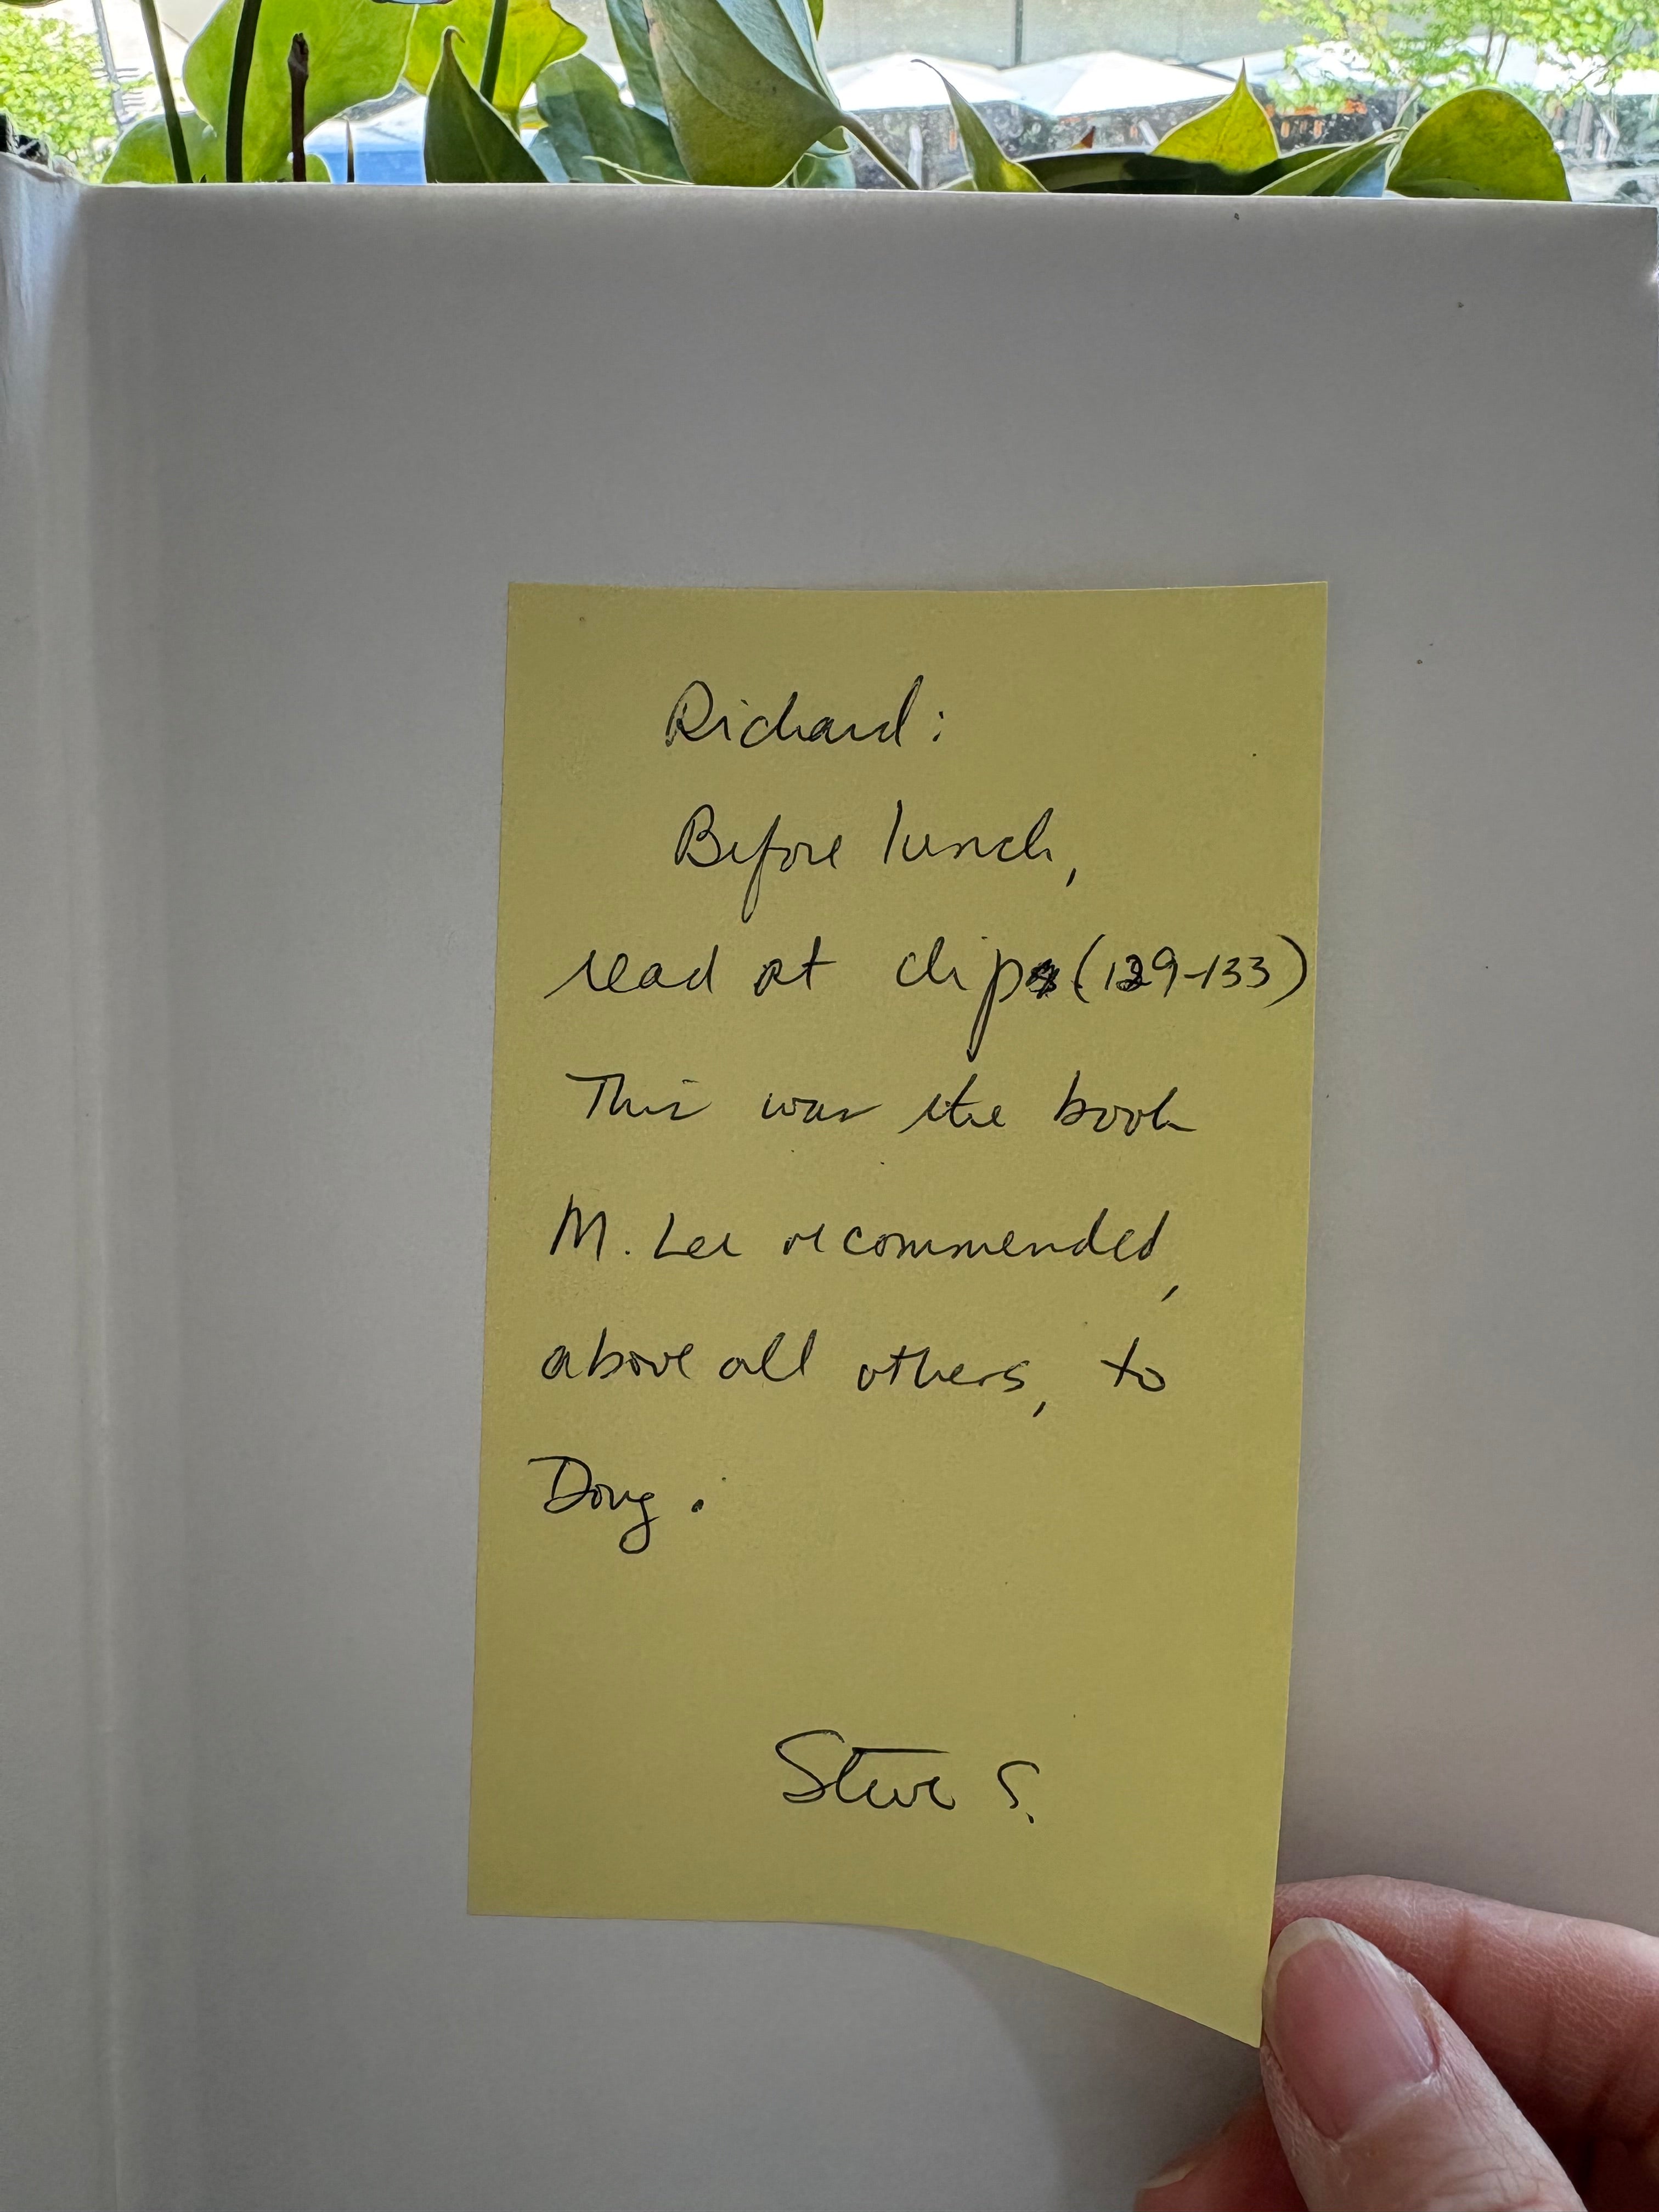 Richard:
Before lunch,
read at clip (129-133)
This was the book
M. Lee recommended,
above all others, to
Doug.
Steve S.